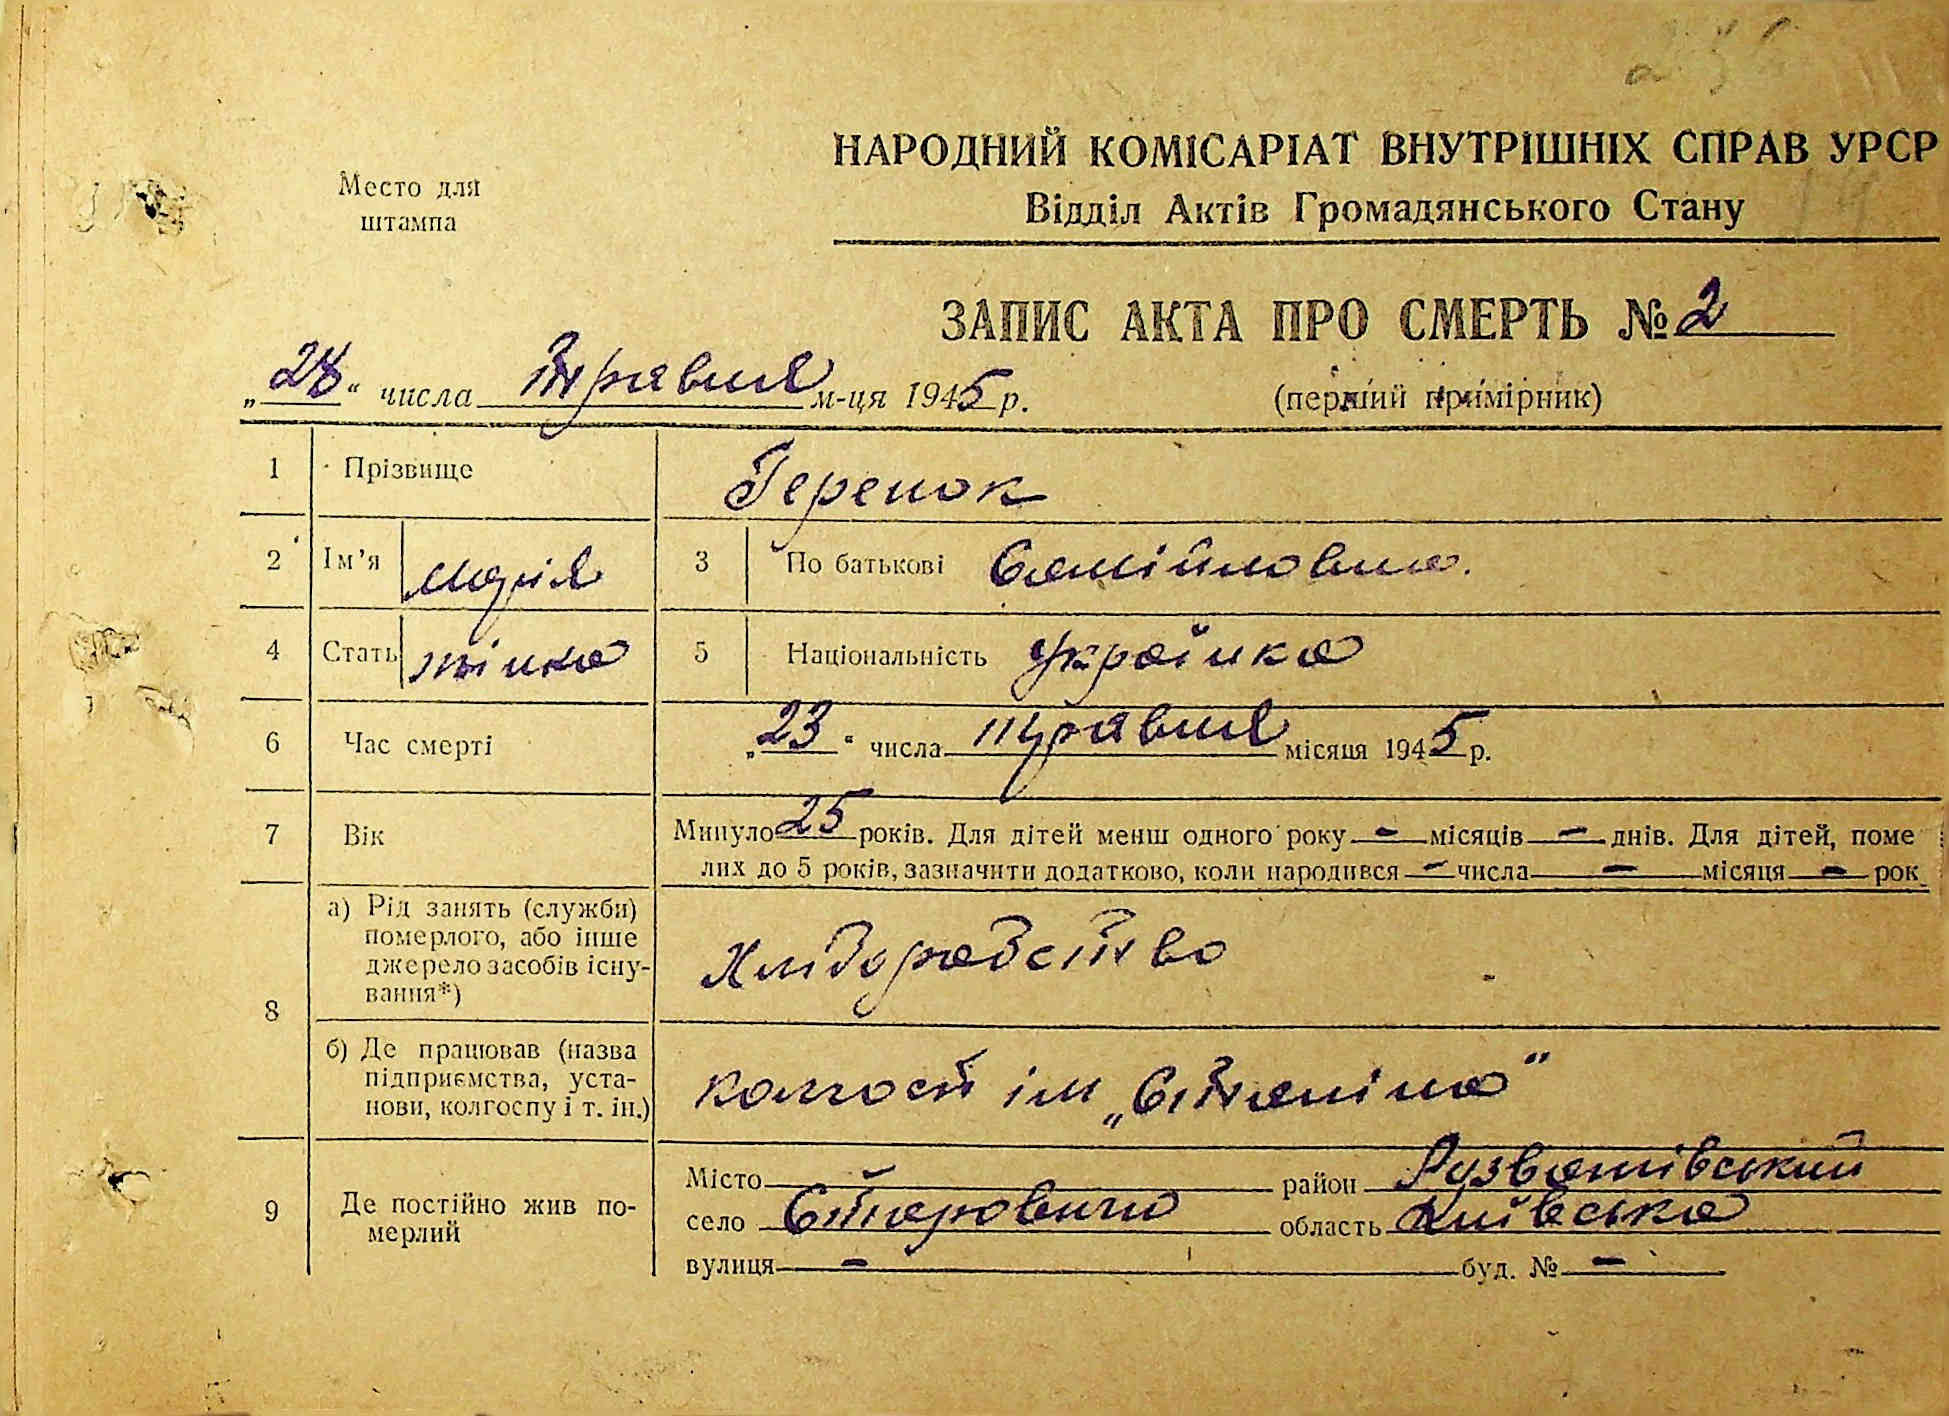 Место для
штампа
НАРОДНИЙ КОМІСАРІАТ ВНУТРІШНІХ СПРАВ УРСР
Відділ Актів Громадянського Стану
ЗАПИС АКТА ПРО СМЕРТЬ № 2
„28“ числа травня м-ця 1945 р.
(перший примірник)
1 Прізвище Геренок
2 Ім'я Марія 3 По батькові Самійловна.
4 Стать жінка 5 Національність Українка
6 Час смерті „23“ числа травня місяця 1945 р.
7 Вік Минуло 25 років. Для дітей менш одного року - місяців - днів. Для дітей, поме
лих до 5 років, зазначити додатково, коли народився - числа - місяця - рок
8 а) Рід занять (служби)
померлого, або інше
джерело засобів існу-
вання*)
Хліборобство
б) Де працював (назва
підприємства, уста-
нови, колгоспу і т. ін.)
колгосп ім „Сталіна“
9 Де постійно жив по-
мерлий
Місто район Розважівський
село Старовичі область Київська
вулиця - буд. № -